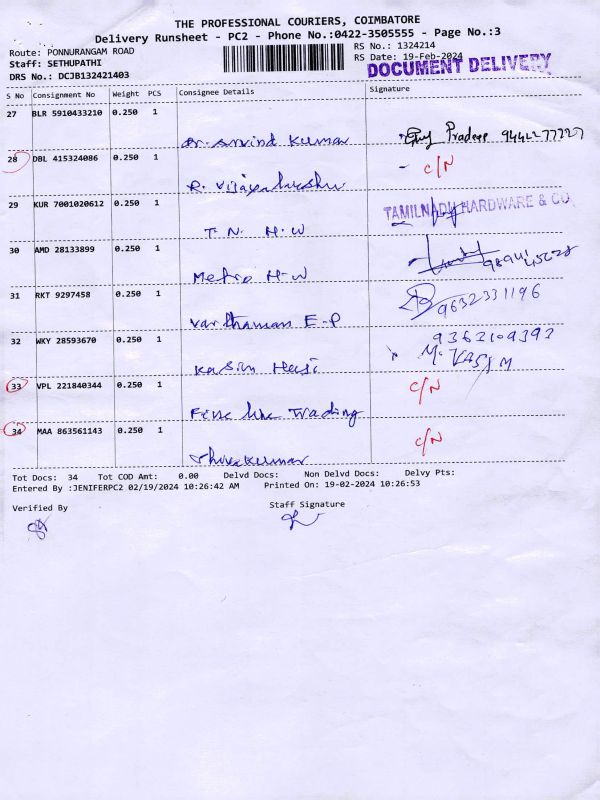 THE PROFESSIONAL COURIERS, COIMBATORE
Delivery Runsheet - PC2 - Phone No.:0422-3505555 - Page No.:3
Route: PONNURANGAM ROAD
Staff: SETHUPATHI
DRS No.: DCJB132421403
RS No.: 1324214
RS Date: 19-Feb-2024
DOCUMENT DELIVERY
S No Consignment No Weight PCS Consignee Details Signature
27 BLR 5910433210 0.250 1
Dr. Arvind Kumar Pradeep
28 DBL 415324086 0.250 1 - C/N
R. Vijaya
29 KUR 7001020612 0.250 1 TAMILNADU HARDWARE & CO
T. N. H.W
30 AMD 28133899 0.250 1
Metro H-W
31 RKT 9297458 0.250 1 9632331196
Vardhaman E-P
32 WKY 28593670 0.250 1 9363109393
Kasim Haji M. KASIM
33 VPL 221840344 0.250 1 C/N
Fine line Trading
34 MAA 863561143 0.250 1 C/N
Shivakumar
Tot Docs: 34 Tot COD Amt: 0.00 Delvd Docs: Non Delvd Docs: Delvy Pts:
Entered By :JENIFERPC2 02/19/2024 10:26:42 AM Printed On: 19-02-2024 10:26:53
Verified By Staff Signature